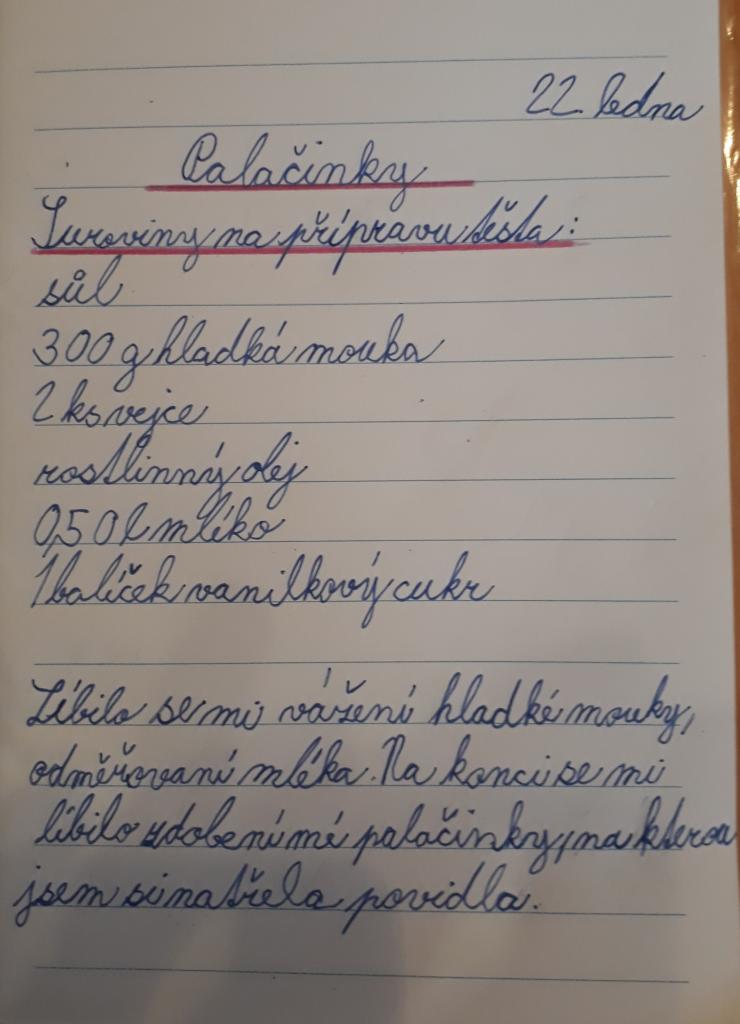 22. ledna
Palačinky
Suroviny na přípravu těsta:
sůl
300 g hladká mouka
2 ks vejce
rostlinný olej
0,50 l mlíko
1 balíček vanilkový cukr
Líbilo se mi vážení hladké mouky,
odměřovaní mléka. Na konci se mi
líbilo zdobení mé palačinky, na kterou
jsem si natřela povidla.